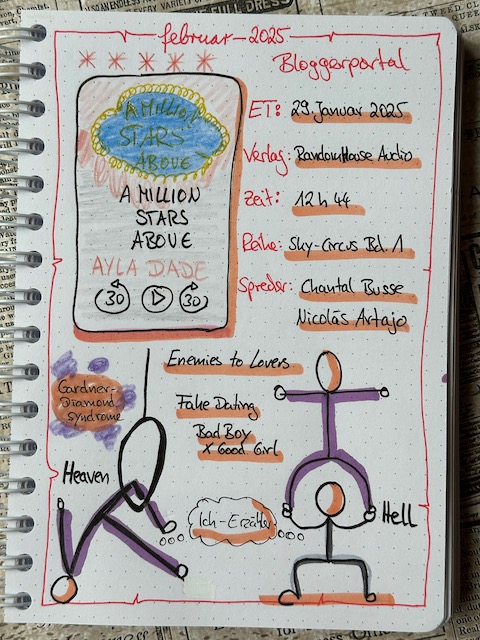 februar - 2025
Bloggerportal
A MILLION
STARS
ABOVE
A MILLION
STARS
ABOVE
AYLA DADE
30
30
ET: 29. Januar 2025
Verlag: RandomHouse Audio
Zeit: 12 h 44
Reihe: Sky-Circus Bd. 1
Sprecher: Chantal Busse
Nicolás Artajo
Enemies to Lovers
Fake Dating
Bad Boy
x Good Girl
Gardner-
Diamond
Syndrome
Heaven
Ich-Erzähler
Hell